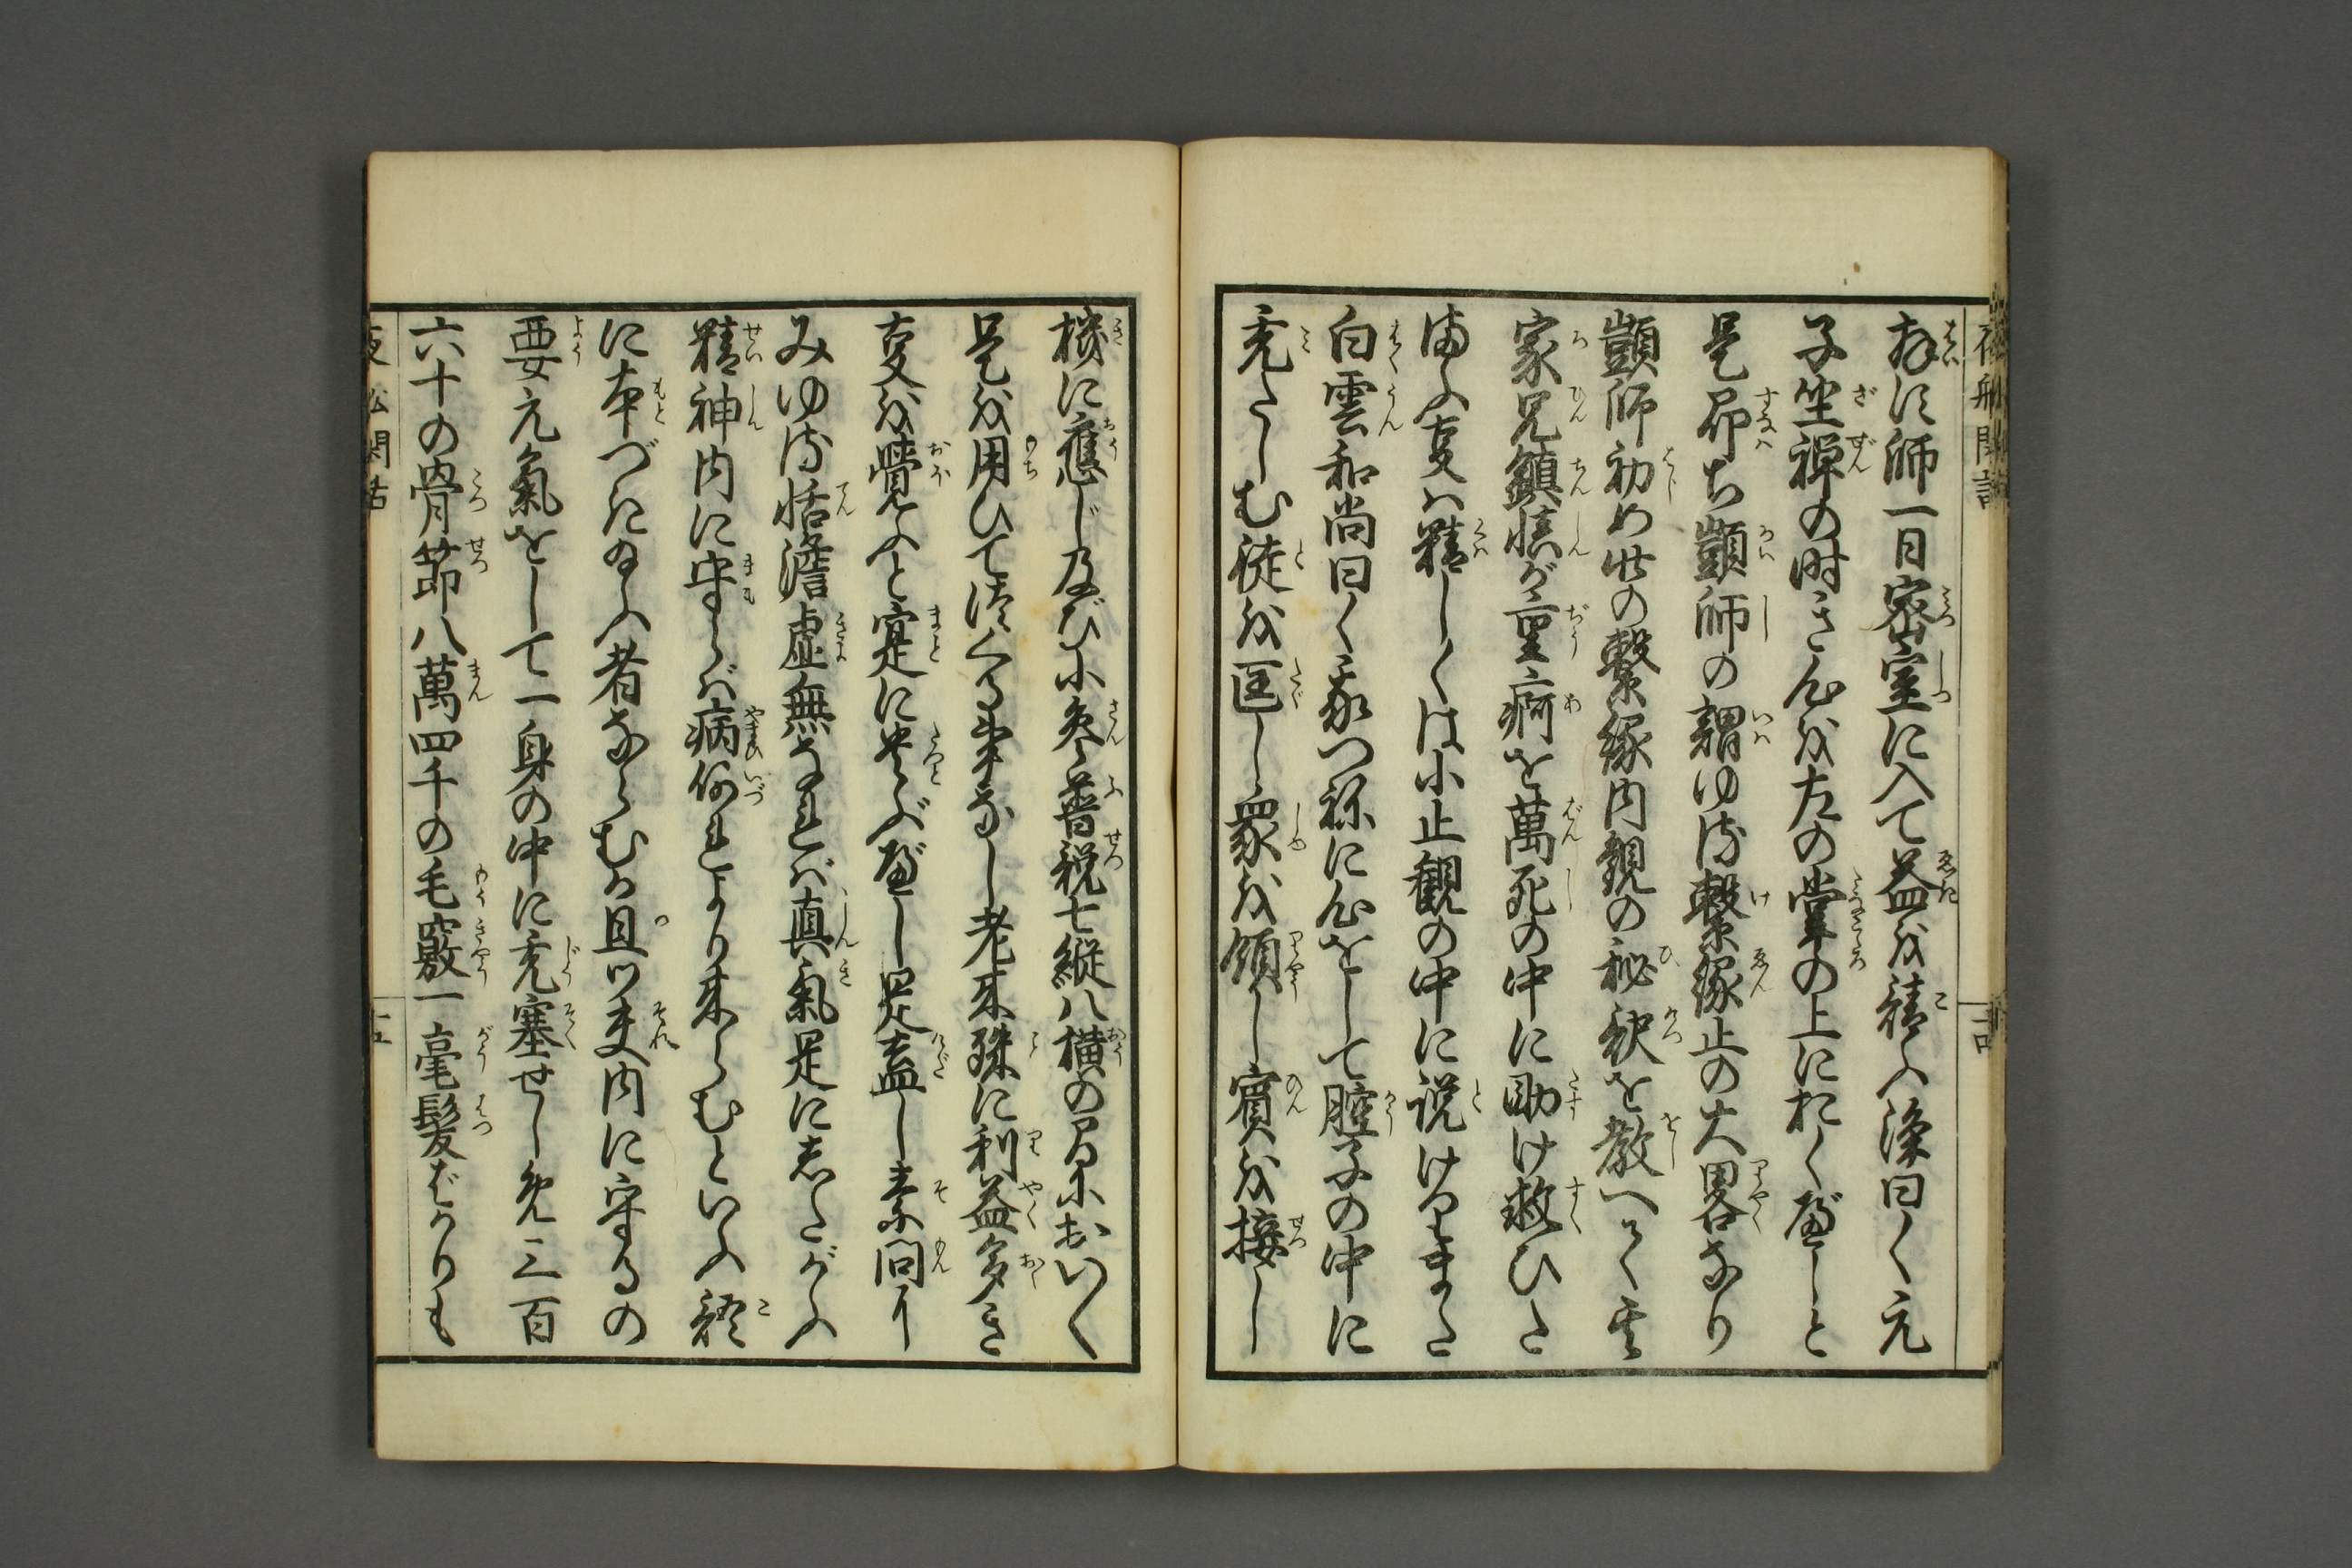 夜船閑話　十四
拝す師一日密室に入て益を請ふ浄曰く元
子坐禅の時き心を左の掌の上におくべしと
是即ち顗師の謂ゆる繋縁止の大畧なり
顗師初め此の繋縁内観の秘訣を教へて其
家兄鎮慎が重痾を萬死の中に助け救ひた
まふ事は精しくは小止観の中に説けりまた
白雲和尚曰く我つねに心をして腔子の中に
充たしむ徒を匡し衆を領し賓を接し
機に應じ及び小参普説七縦八横の間においく
是を用ひて尽くる事なし老来殊に利益多き
事を覺ふと寔に貴とぶべし是蓋し素問に
ゆる恬澹虚無なれば真氣是にしたがふ
精神内に守らば病何れより来らむといふ語
に本づき給ふ者ならむか且つ夫れ内に守るの
要元氣をして一身の中に充塞せしめ三百
六十の骨節八萬四千の毛竅一毫髪ばかりも
夜船閑話　十五